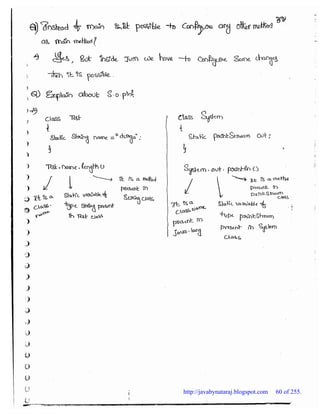 Q) Instead of main is it possible to Configure any other method
as main method?
A) Yes, But inside Jvm we have to Configure Some changes
then it is possible.
Q) Explain about S.o.pln
class Test
{
static String name = "durga";
}
Test.name.length()
It is a class name
static variable of type String present in Test class
It is a method present in String class
class System
{
static printStream out;
}
System.out.println()
It is a class name present in Java.lang
static variable of type printStream present in System class
It is a method present in PrintStream class
http://javabynataraj.blogspot.com 60 of 255.